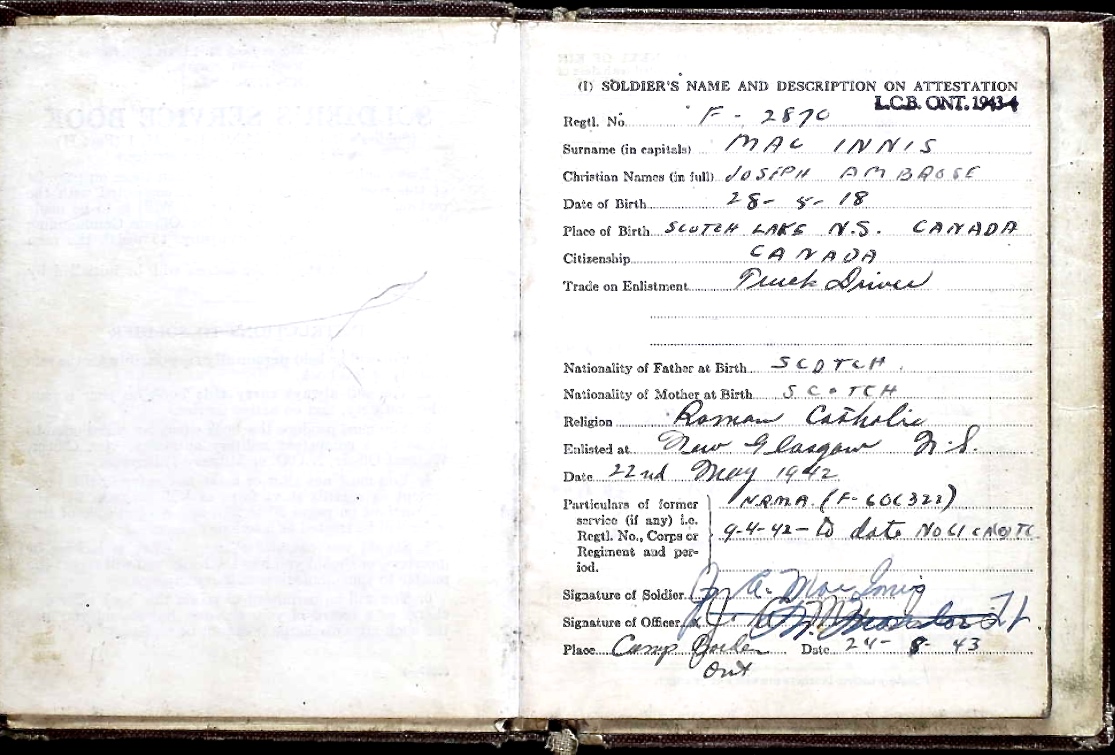 (1) SOLDIER'S NAME AND DESCRIPTION ON ATTESTATION
L.C.B. ONT. 1943-4
Regtl. No. F - 2870
Surname (in capitals) MAC INNIS
Christian Names (in full) JOSEPH AMBROSE
Date of Birth 28- 8- 18
Place of Birth SCOTCH LAKE N.S. CANADA
Citizenship CANADA
Trade on Enlistment Truck Driver
Nationality of Father at Birth SCOTCH
Nationality of Mother at Birth SCOTCH
Religion Roman Catholic
Enlisted at New Glasgow N.S.
Date 22nd May 1942
Particulars of former NRMA (F-606323)
service (if any) i.e.
Regtl. No., Corps or 9-4-42- to date No 61
Regiment and per-
iod.
Signature of Soldier J. A. MacInnis
Signature of Officer Lt.
Place Camp Borden Date 24- 8- 43
Ont